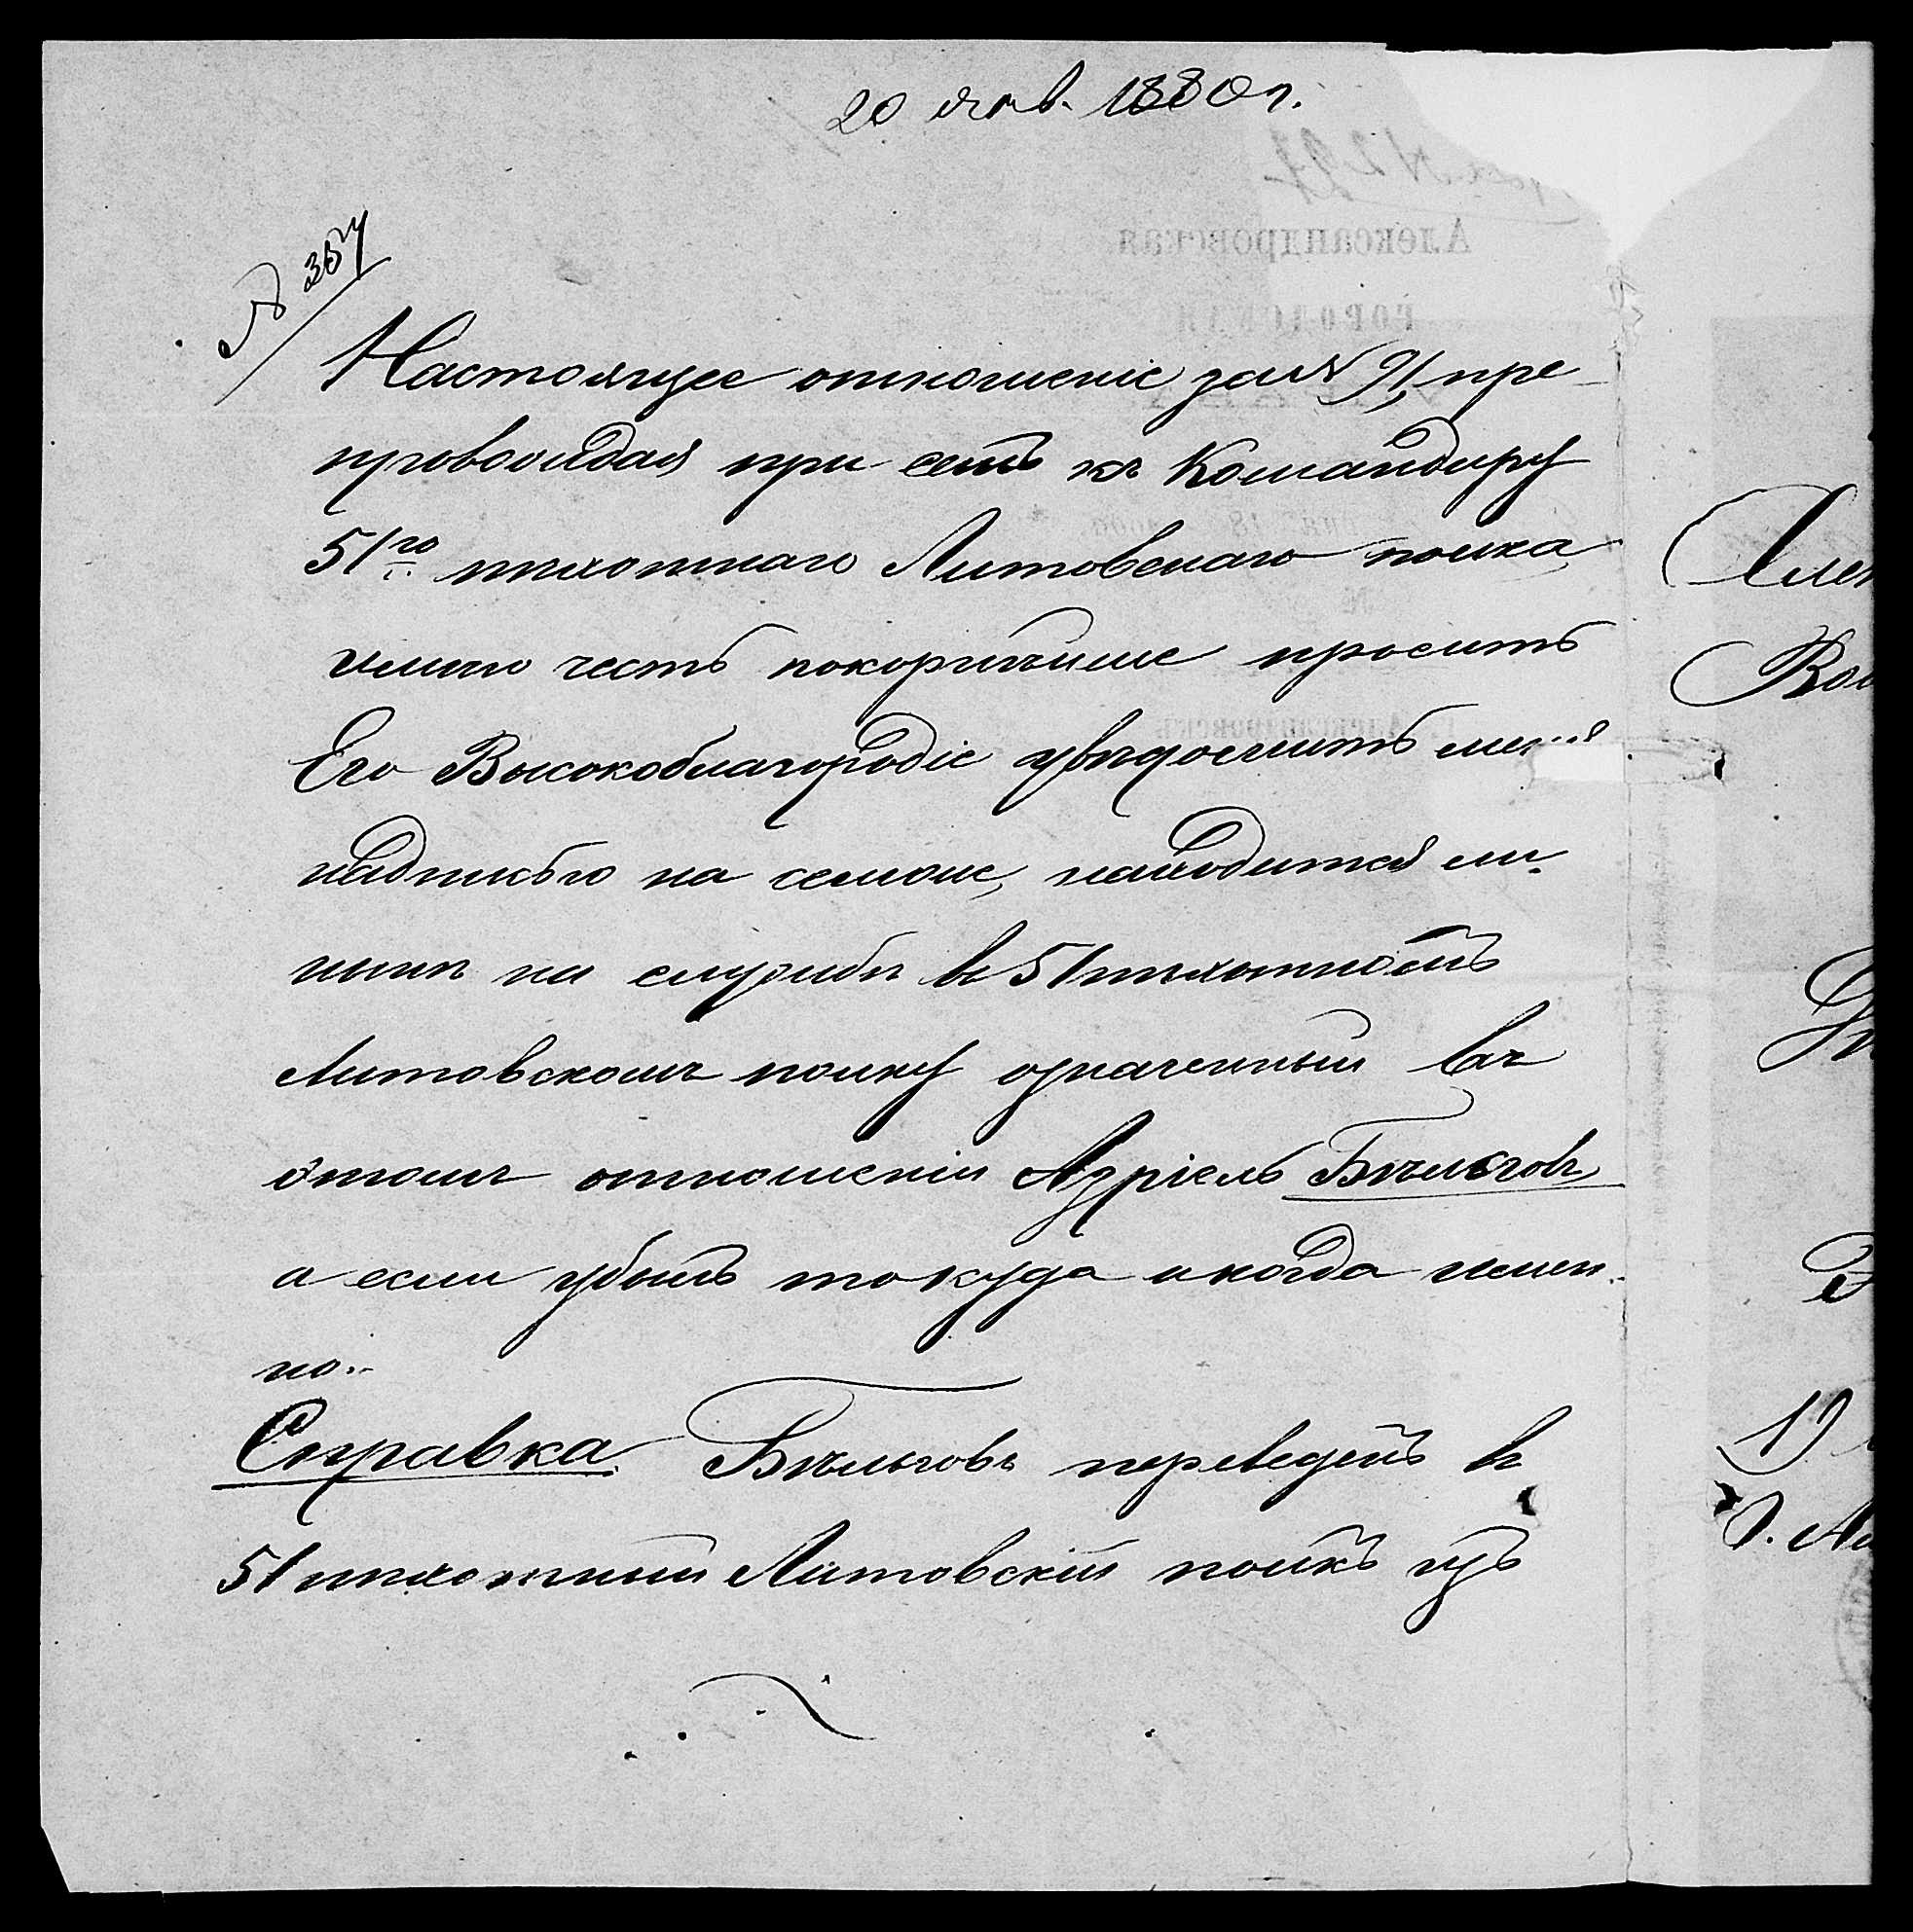 20 янв. 1880 г.
№ 357
Настоящее отношеніе за № 91, пре
провождая при семъ къ Командиру
51го пѣхотнаго Литовскаго полка,
имѣю честь покорнѣйше просить
Его Высокоблагородіе увѣдомить меня
надписью на семъже, находится ли
нынѣ на службѣ въ 51 пѣхотномъ
Литовскомъ полку означенный въ
этомъ отношеніи Азріель Бѣльговъ,
а если убылъ то куда и когда имен-
но.
Справка. Бѣльговъ переведенъ въ
51 пѣхотный Литовскій полкъ изъ
Александровская
ГОРОДСКАЯ
г. Александровскъ
Алек
Ком
1)